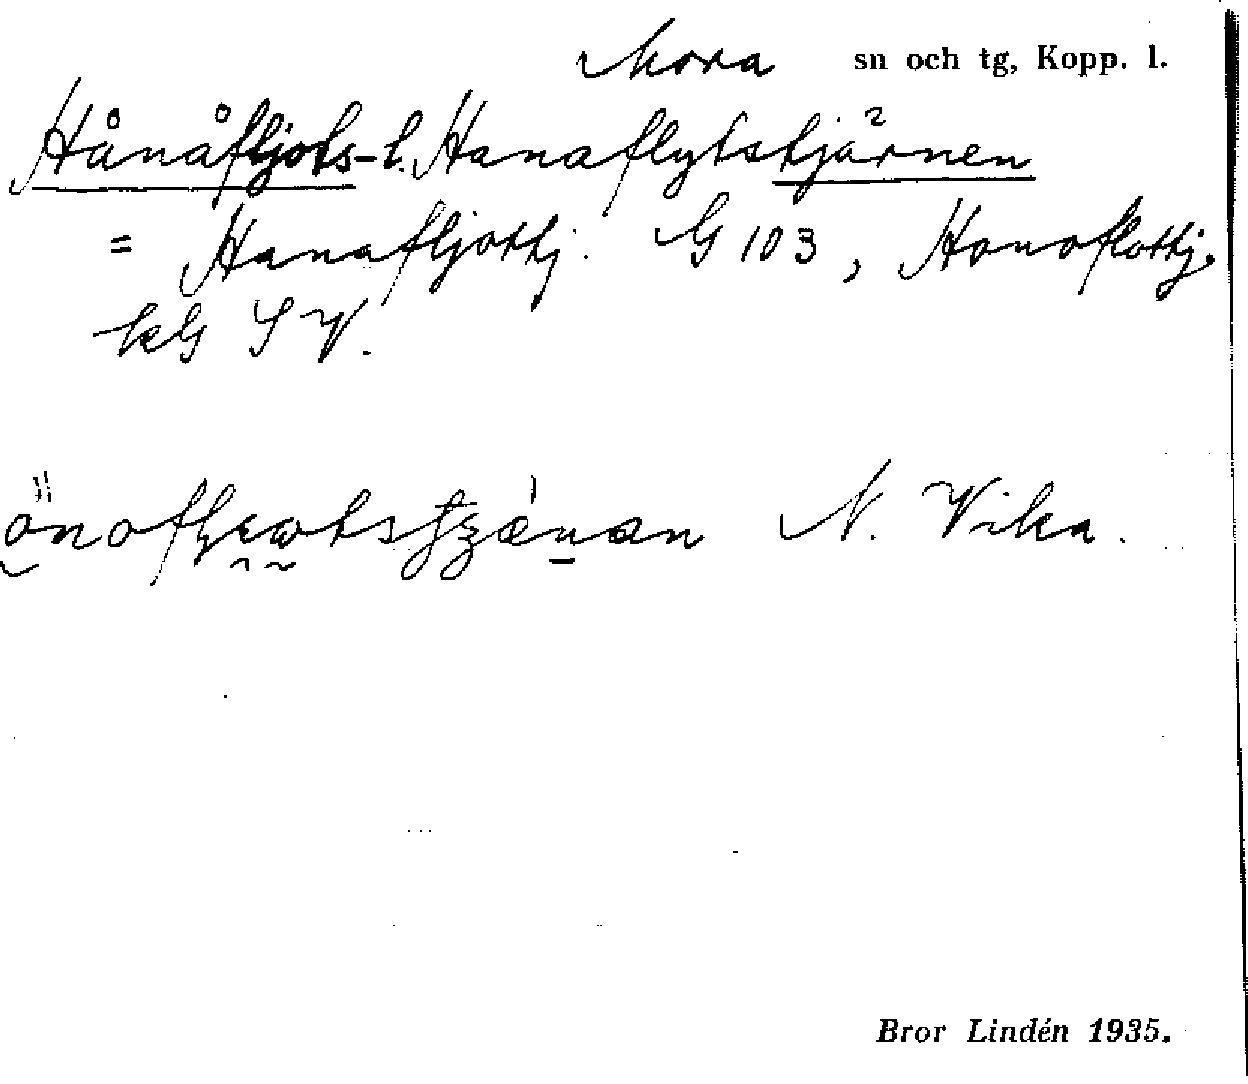 Mora sn och tg, Kopp. l.
Hånåfljots- l. Hanaflytstjärnen
= Hanafljottj. G 103, Honoflottj.
kG SV.
N. Vika.
Bror Lindén 1935.